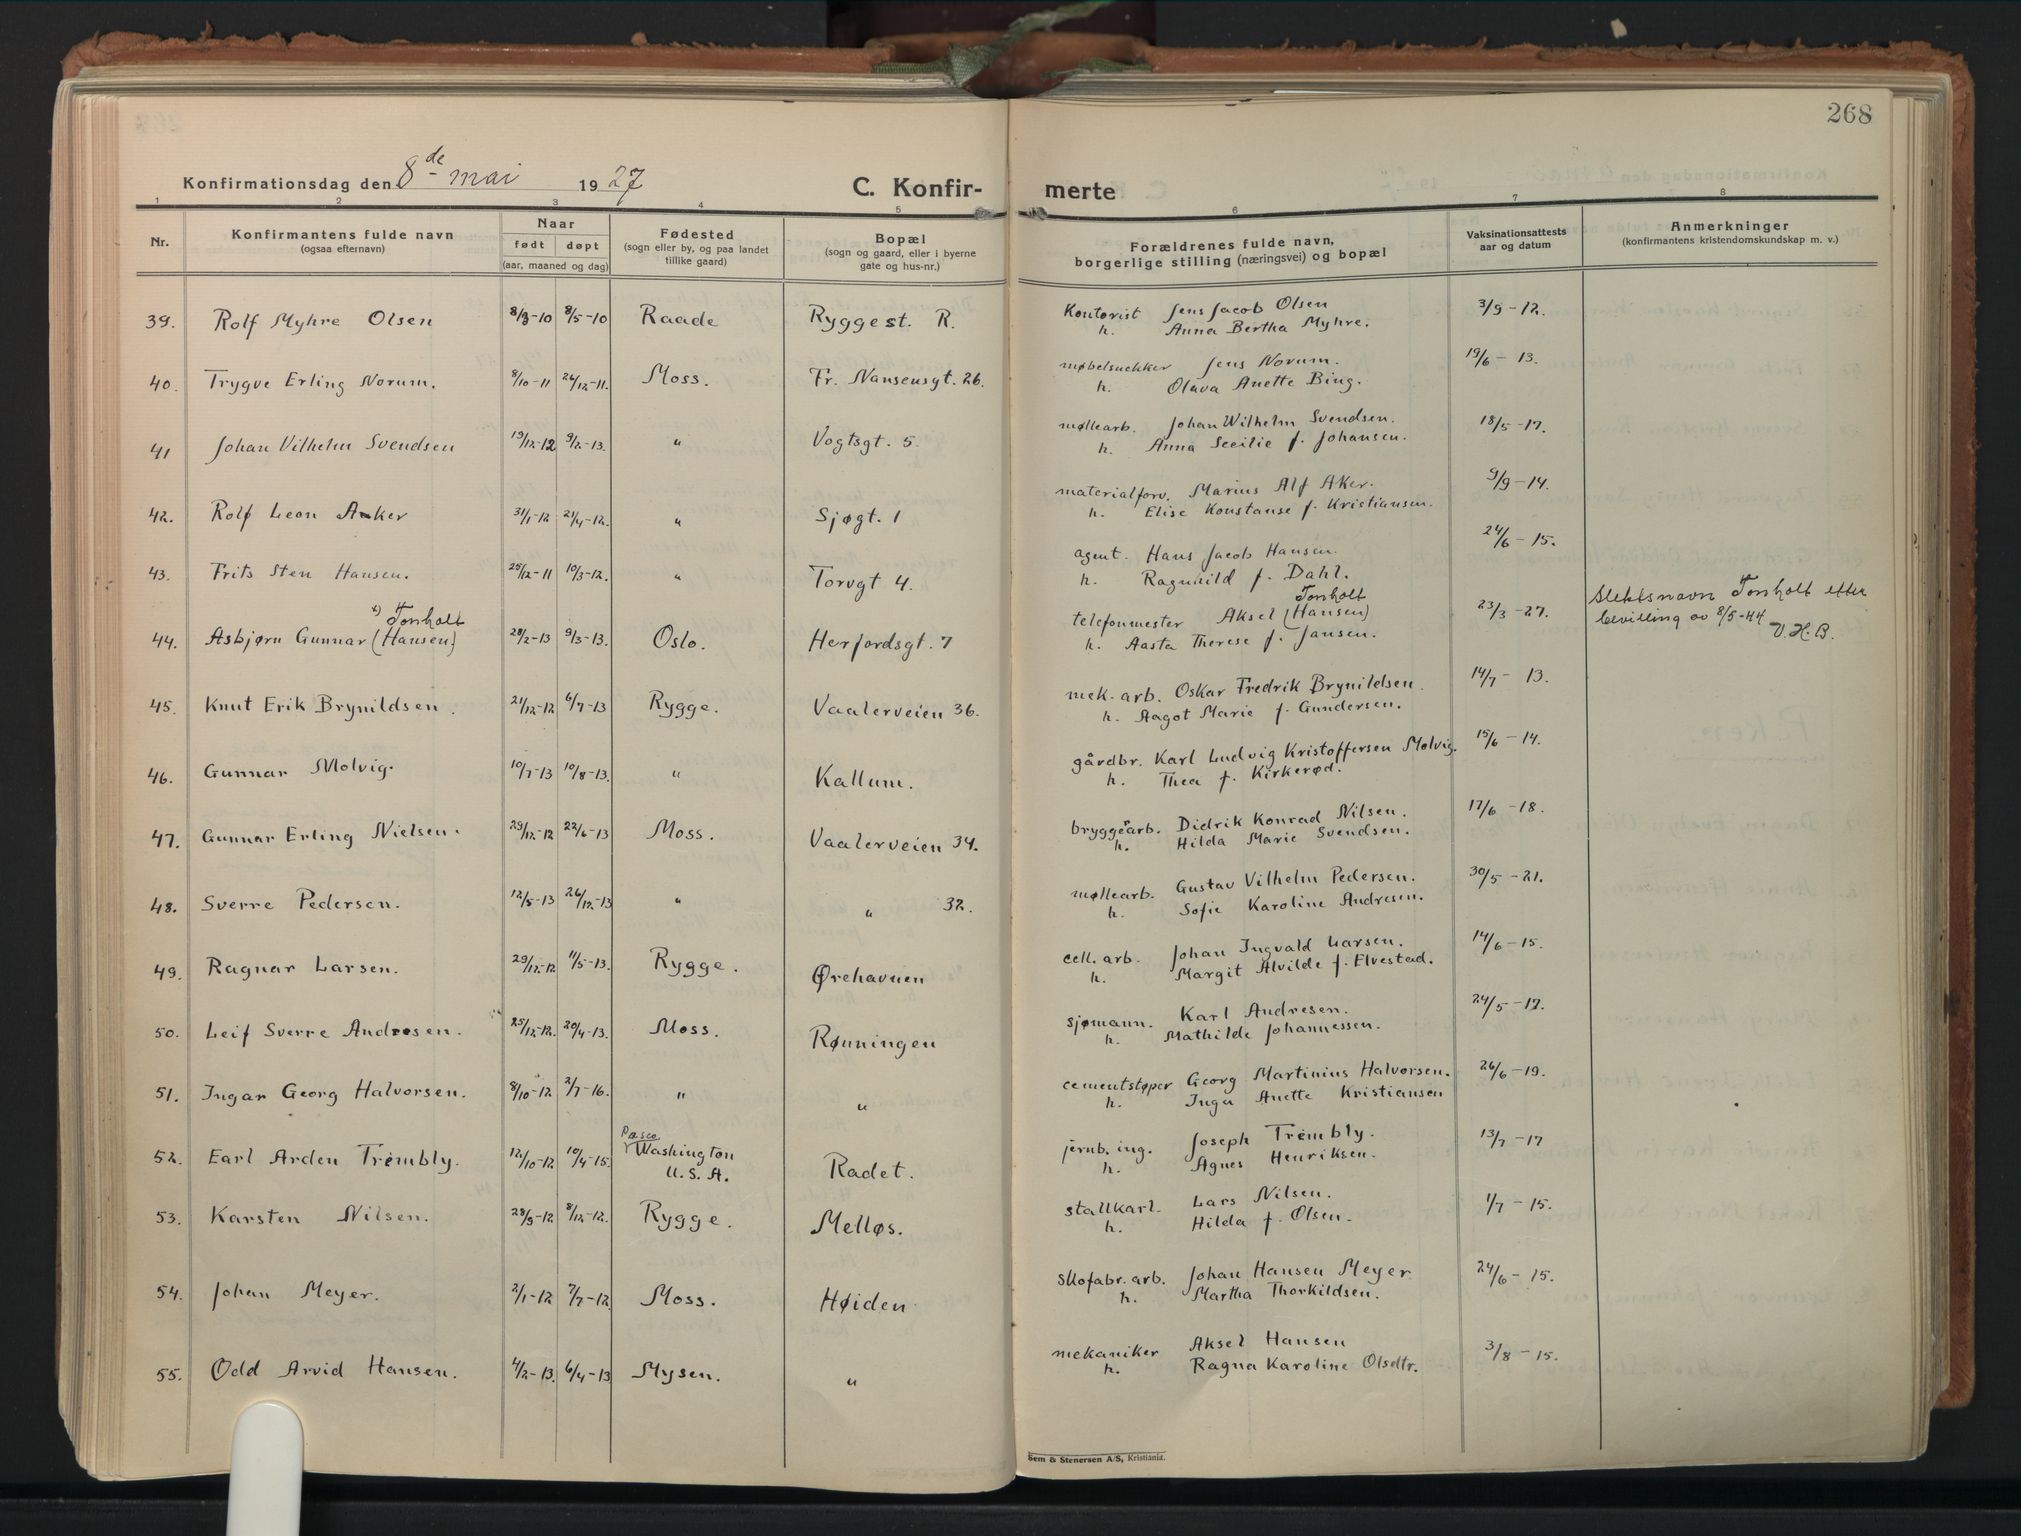 268
Konfirmationsdag den 8de mai 1927 C. Konfir- merte
1 2 3 4 5 6 7 8
Nr. Konfirmantens fulde navn (ogsaa efternavn) Naar født døpt (aar, maaned og dag) Fødested (sogn eller by, og paa landet tillike gaard) Bopæl (sogn og gaard, eller i byerne gate og hus-nr.) Forældrenes fulde navn, borgerlige stilling (næringsvei) og bopæl Vaksinationsattests aar og datum Anmerkninger (konfirmantens kristendomskundskap m. v.)
39. Rolf Myhre Olsen 8/3-10 8/5-10 Raade Rygge st. R. Kontorist Jens Jacob Olsen 3/9-12.
h. Anna Bertha Myhre.
40. Trygve Erling Norum. 8/10-11 26/12-11. Moss. Fr. Nansensgt. 26. møbelsnekker Jens Norum. 19/6-13.
h. Olava Anette Bing.
41 Johan Vilhelm Svendsen 19/12-12 9/2-13. " Vogtsgt. 5. møllearb. Johan Wilhelm Svendsen. 18/5-17.
h. Anna Secilie f. Johansen.
42. Rolf Leon Aker 31/1-12 21/4-12. " Sjøgt. 1 materialforv. Marius Alf Aker. 9/9-14.
h. Elise Konstanse f. Kristiansen.
43. Frits Sten Hansen. 25/12-11 10/3-12. " Torvgt 4. agent. Hans Jacob Hansen. 24/6-15.
h. Ragnhild f. Dahl.
x) Tonholt Tonholt
44. Asbjørn Gunnar (Hansen) 28/2-13 9/3-13. Oslo. Herfordsgt. 7 telefonmester Aksel (Hansen) 23/3-27. Slektsnavn Tonholt efter
h. Aasta Therese f. Jansen. bevilling av 8/5-44 V.H.B.
45. Knut Erik Brynildsen. 21/12-12 6/7-13 Rygge. Vaalerveien 36. mek. arb. Oskar Fredrik Brynildsen. 14/7-13.
h. Aagot Marie f. Gundersen.
46. Gunnar Molvig. 10/7-13 10/8-13. " Kallum. gårdbr. Karl Ludvig Kristoffersen Molvig. 15/6-14.
h. Thea f. Kirkerød.
47. Gunnar Erling Nielsen. 29/12-12 22/6-13 Moss. Vaalerveien 34. bryggerarb. Didrik Konrad Nilsen. 17/6-18.
h. Hilda Marie Svendsen.
48. Sverre Pedersen. 12/5-13 26/12-13 " " 32. møllearb. Gustav Vilhelm Pedersen. 30/5-21.
h. Sofie Karoline Andresen.
49. Ragnar Larsen. 29/12-12 11/5-13. Rygge. Ørehavnen cell. arb. Johan Ingvald Larsen. 14/6-15.
h. Margit Alvilde f. Elvestad.
50. Leif Sverre Andresen. 25/12-12. 20/4-13. Moss. Rønningen sjømann. Karl Andresen. 24/5-17.
h. Mathilde Johannessen.
51. Ingar Georg Halvorsen. 8/10-12 2/7-16. " " cementstøper Georg Martinius Halvorsen. 26/6-19.
h. Inga Anette Kristiansen
52. Earl Arden Trembly. 12/10-12 10/4-15. Pasco Washington U.S.A. Radet. jernb. ing. Joseph Trembly. 13/7-17
h. Agnes Henriksen.
53. Karsten Nilsen. 28/9-12 8/12-12. Rygge. Melløs. stallkarl. Lars Nilsen. 1/7-15.
h. Hilda f. Olsen.
54. Johan Meyer. 2/1-12 7/7-12. Moss. Høiden. skofabr. arb. Johan Hansen Meyer. 24/6-15.
h. Martha Thorkildsen.
55. Odd Arvid Hansen. 4/2-13. 6/4-13 Mysen. " mekaniker Aksel Hansen 3/8-15.
h. Ragna Karoline Olsdtr.
Sem & Stenersen A/S, Kristiania.